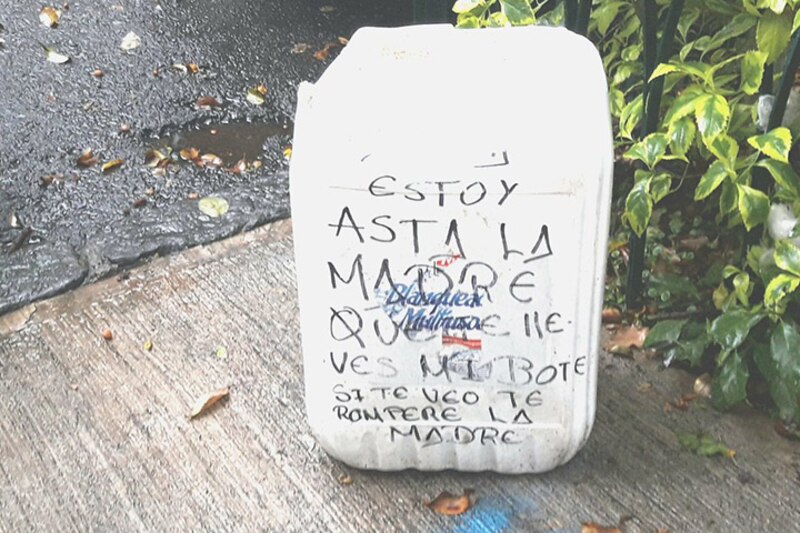 ESTOY
ASTA LA
MADRE
QUE ME LLE-
VES MI BOTE
SI TE VEO TE
ROMPERE LA
MADRE
Blanqueador
Multiusos